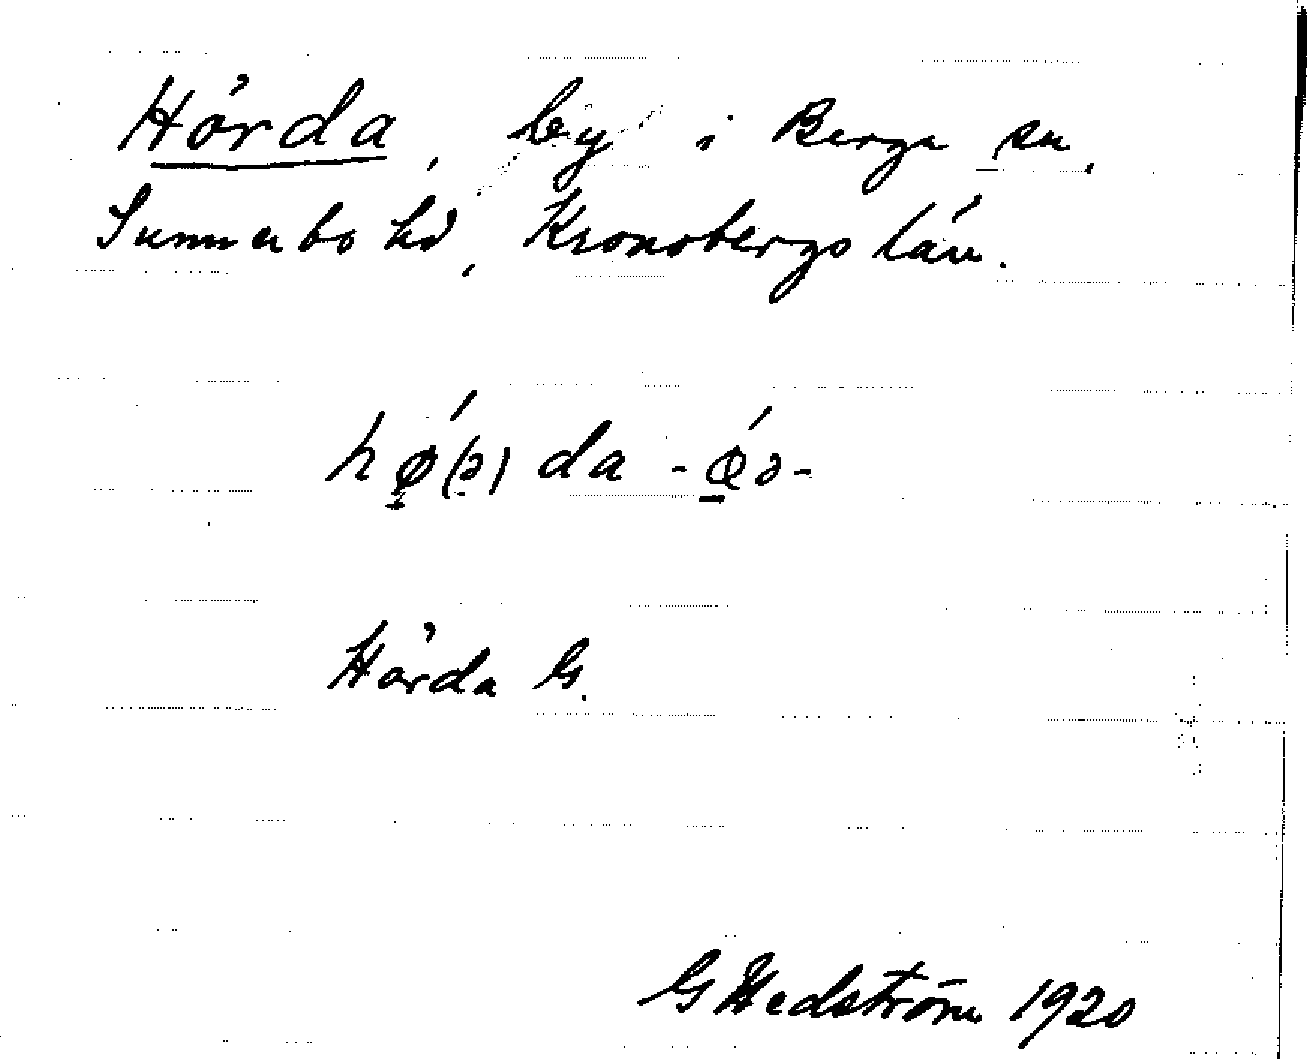 Hörda, by i Berga sn,
Sunnerbo hd, Kronobergs län.
hǿ̱(ə)da -œ̱́ə-
Hörda G.
G Hedström 1920